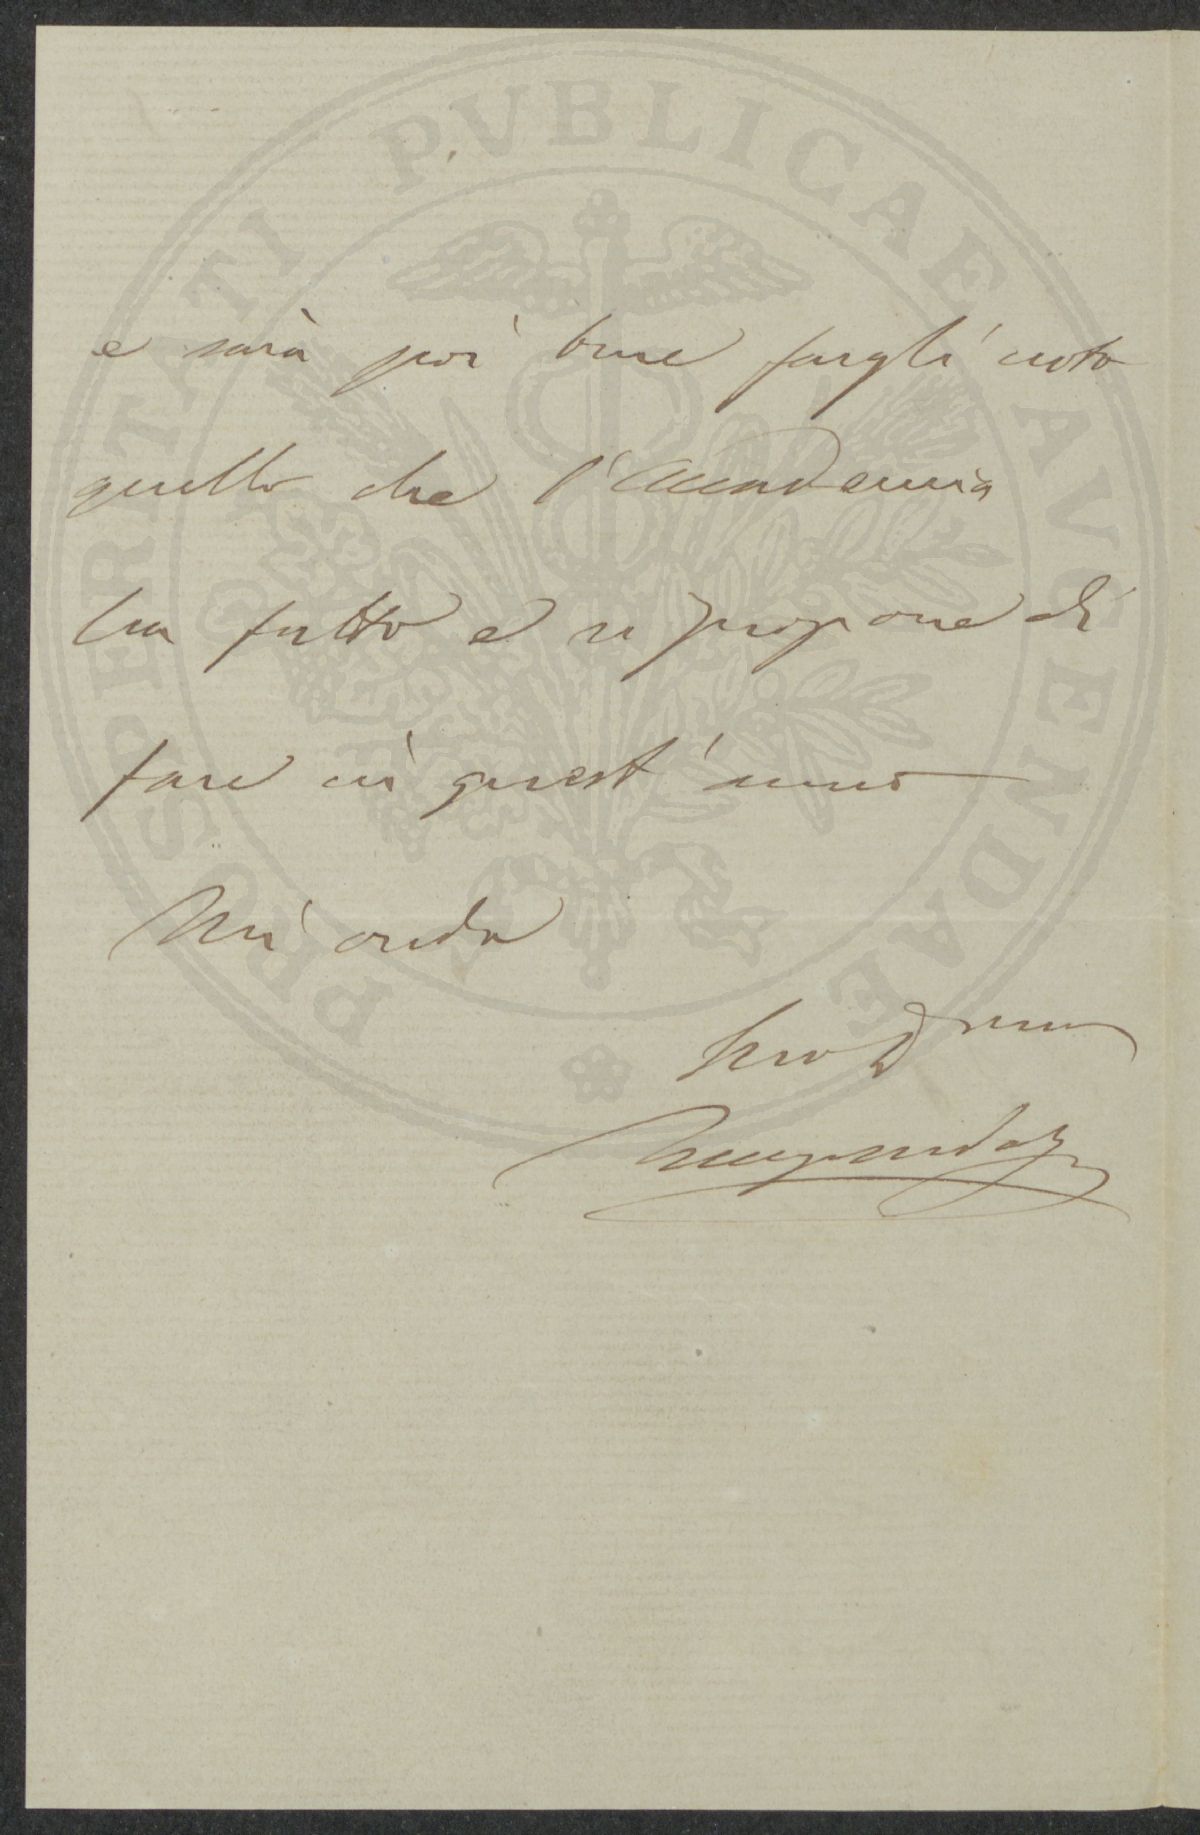 e sarà poi bene fargli noto
quello che l'Accademia
ha fatto e si propone di
fare in quest'anno
Mi creda
Suo Dmo
PROSPERITATI PVBLICAE AVGENDAE